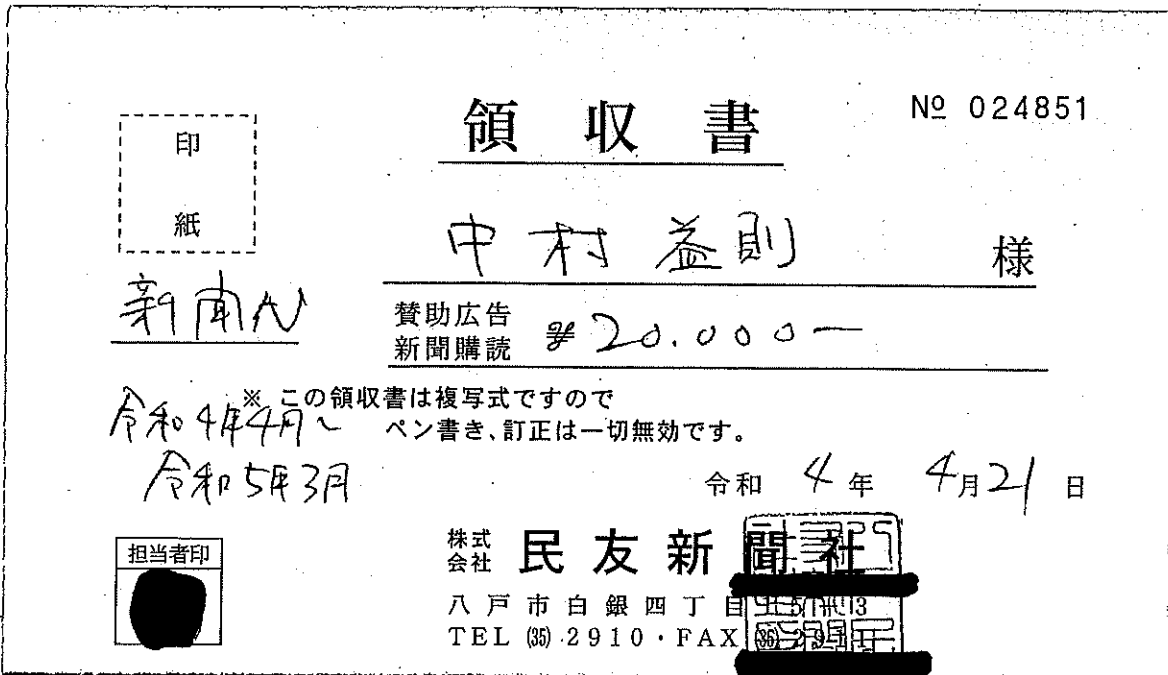 領収書
№ 024851
印
紙
中村益則 様
新聞代
賛助広告
新聞購読
¥20.000ー
※ この領収書は複写式ですので
ペン書き、訂正は一切無効です。
令和4年4月~
令和5年3月
令和 4年 4月21日
担当者印
株式
会社 民友新聞社
八戸市白銀四丁目
TEL (35) 2910・FAX